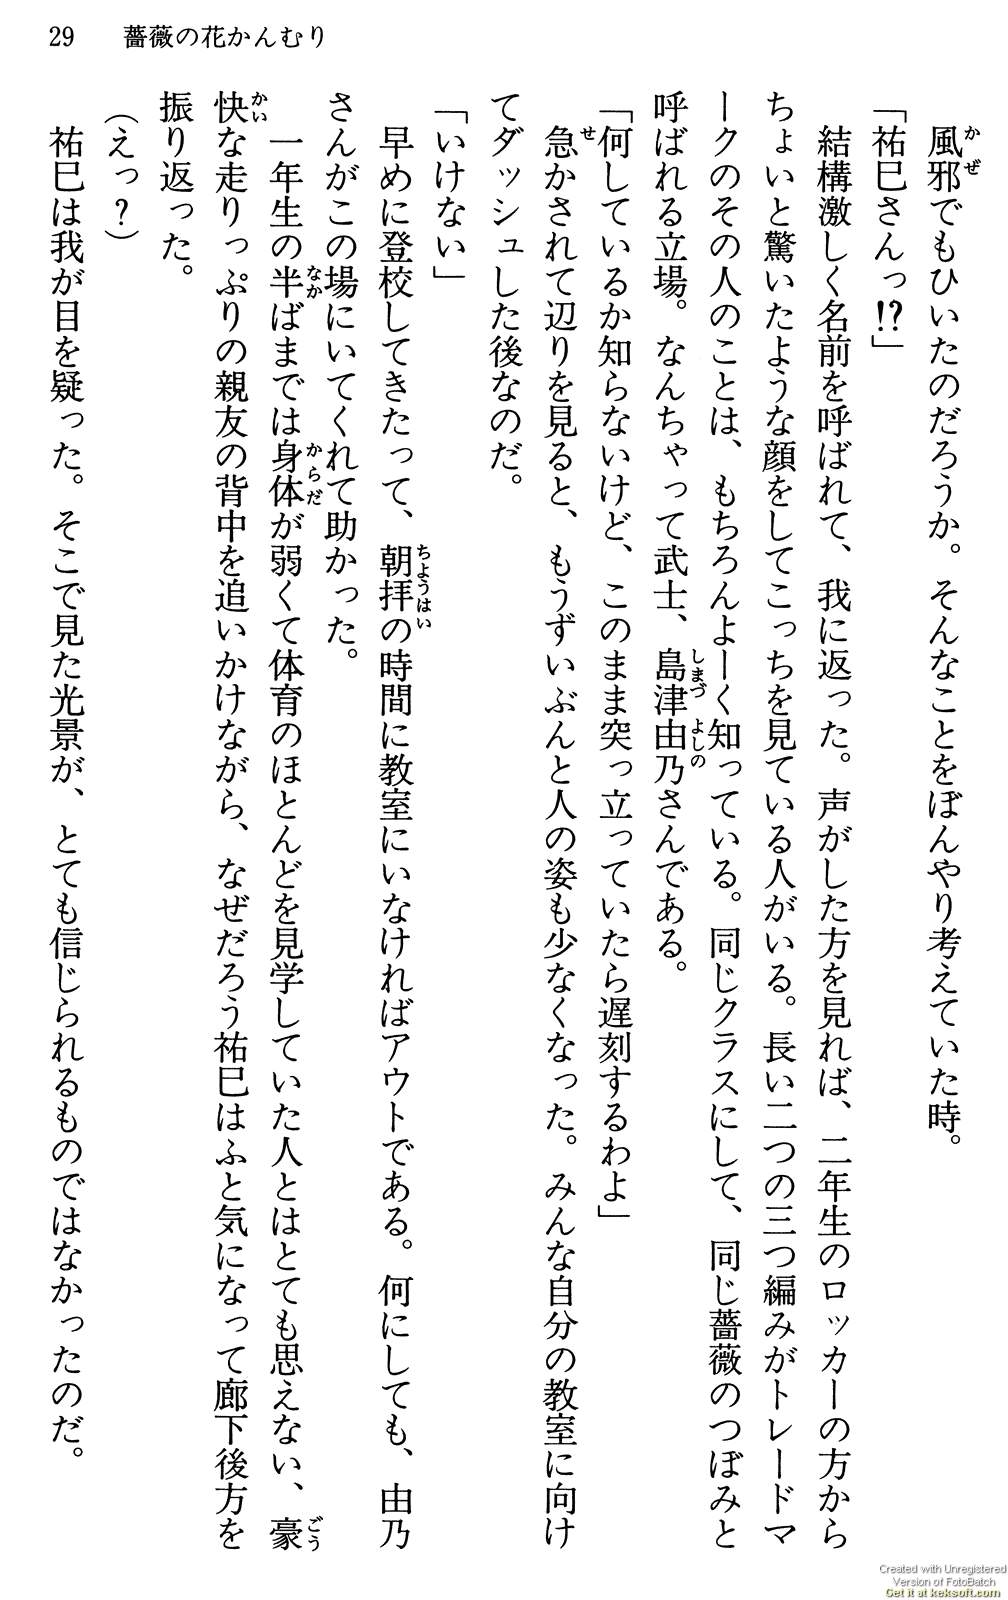 29　薔薇の花かんむり
風邪でもひいたのだろうか。そんなことをぼんやり考えていた時。
「祐巳さんっ!?」
結構激しく名前を呼ばれて、我に返った。声がした方を見れば、二年生のロッカーの方から
ちょいと驚いたような顔をしてこっちを見ている人がいる。長い二つの三つ編みがトレードマ
ークのその人のことは、もちろんよーく知っている。同じクラスにして、同じ薔薇のつぼみと
呼ばれる立場。なんちゃって武士、島津由乃さんである。
「何しているか知らないけど、このまま突っ立っていたら遅刻するわよ」
急かされて辺りを見ると、もうずいぶんと人の姿も少なくなった。みんな自分の教室に向け
てダッシュした後なのだ。
「いけない」
早めに登校してきたって、朝拝の時間に教室にいなければアウトである。何にしても、由乃
さんがこの場にいてくれて助かった。
一年生の半ばまでは身体が弱くて体育のほとんどを見学していた人とはとても思えない、豪
快な走りっぷりの親友の背中を追いかけながら、なぜだろう祐巳はふと気になって廊下後方を
振り返った。
（えっ？）
祐巳は我が目を疑った。そこで見た光景が、とても信じられるものではなかったのだ。
Created with Unregistered
Version of FotoBatch
Get it at keksoft.com